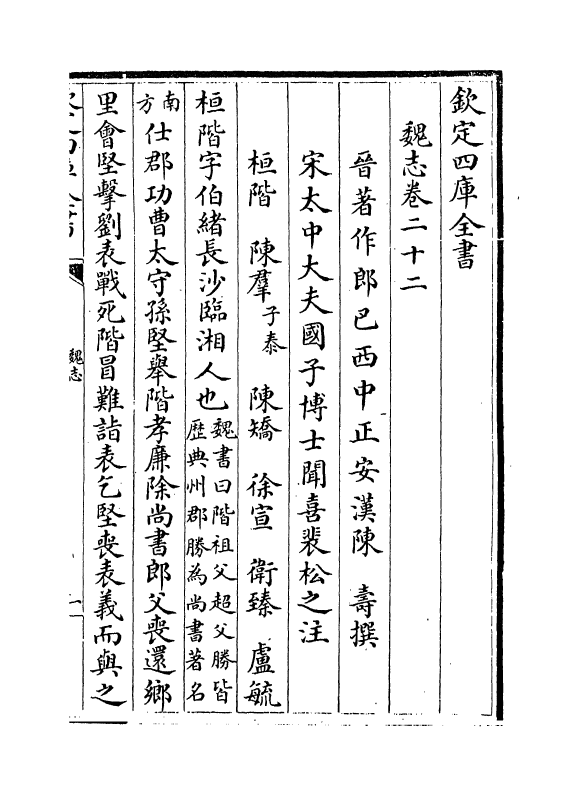 欽定四庫全書
魏志卷二十二
晉著作郎巴西中正安漢陳壽撰
宋太中大夫國子博士聞喜裴松之注
桓階 陳羣子泰 陳矯 徐宣 衛臻 盧毓
桓階字伯緒長沙臨湘人也魏書曰階祖父超父勝皆歷典州郡勝為尚書著名
南方仕郡功曹太守孫堅舉階孝廉除尚書郎父喪還鄉
里會堅擊劉表戰死階冒難詣表乞堅喪表義而與之
魏志
一